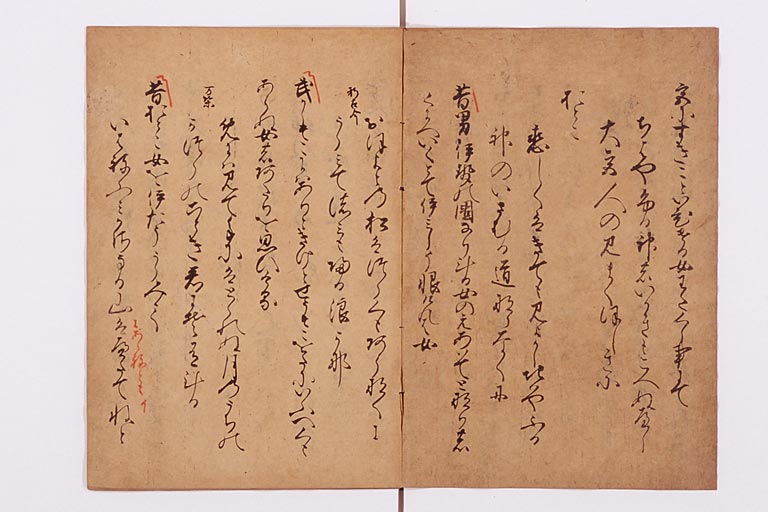 宮にすきこといひける女わたくし事にて
ちはやふる神のいかきもこえぬへし
大宮人の見まくほしさに
おとこ
恋しくはきても見よかしちはやふる
神のいさむる道ならなくに
昔男伊勢の國なりける女の又えあはてとなりの
くにへいくとていみしう恨けれは女
おほよとの松はつらくもあらなくに
新古今
うらみて滞のみかへる浪かな
昔そこにはありときけとせうそこをたにいふへくも
あらぬ女のあたりを思ひける
めには見て手にはとられぬ月のうちの
万葉
かつらのことき君にそ有ける
昔おとこ女を伊たううらみて
いはねふみかさなる山はへたてねと